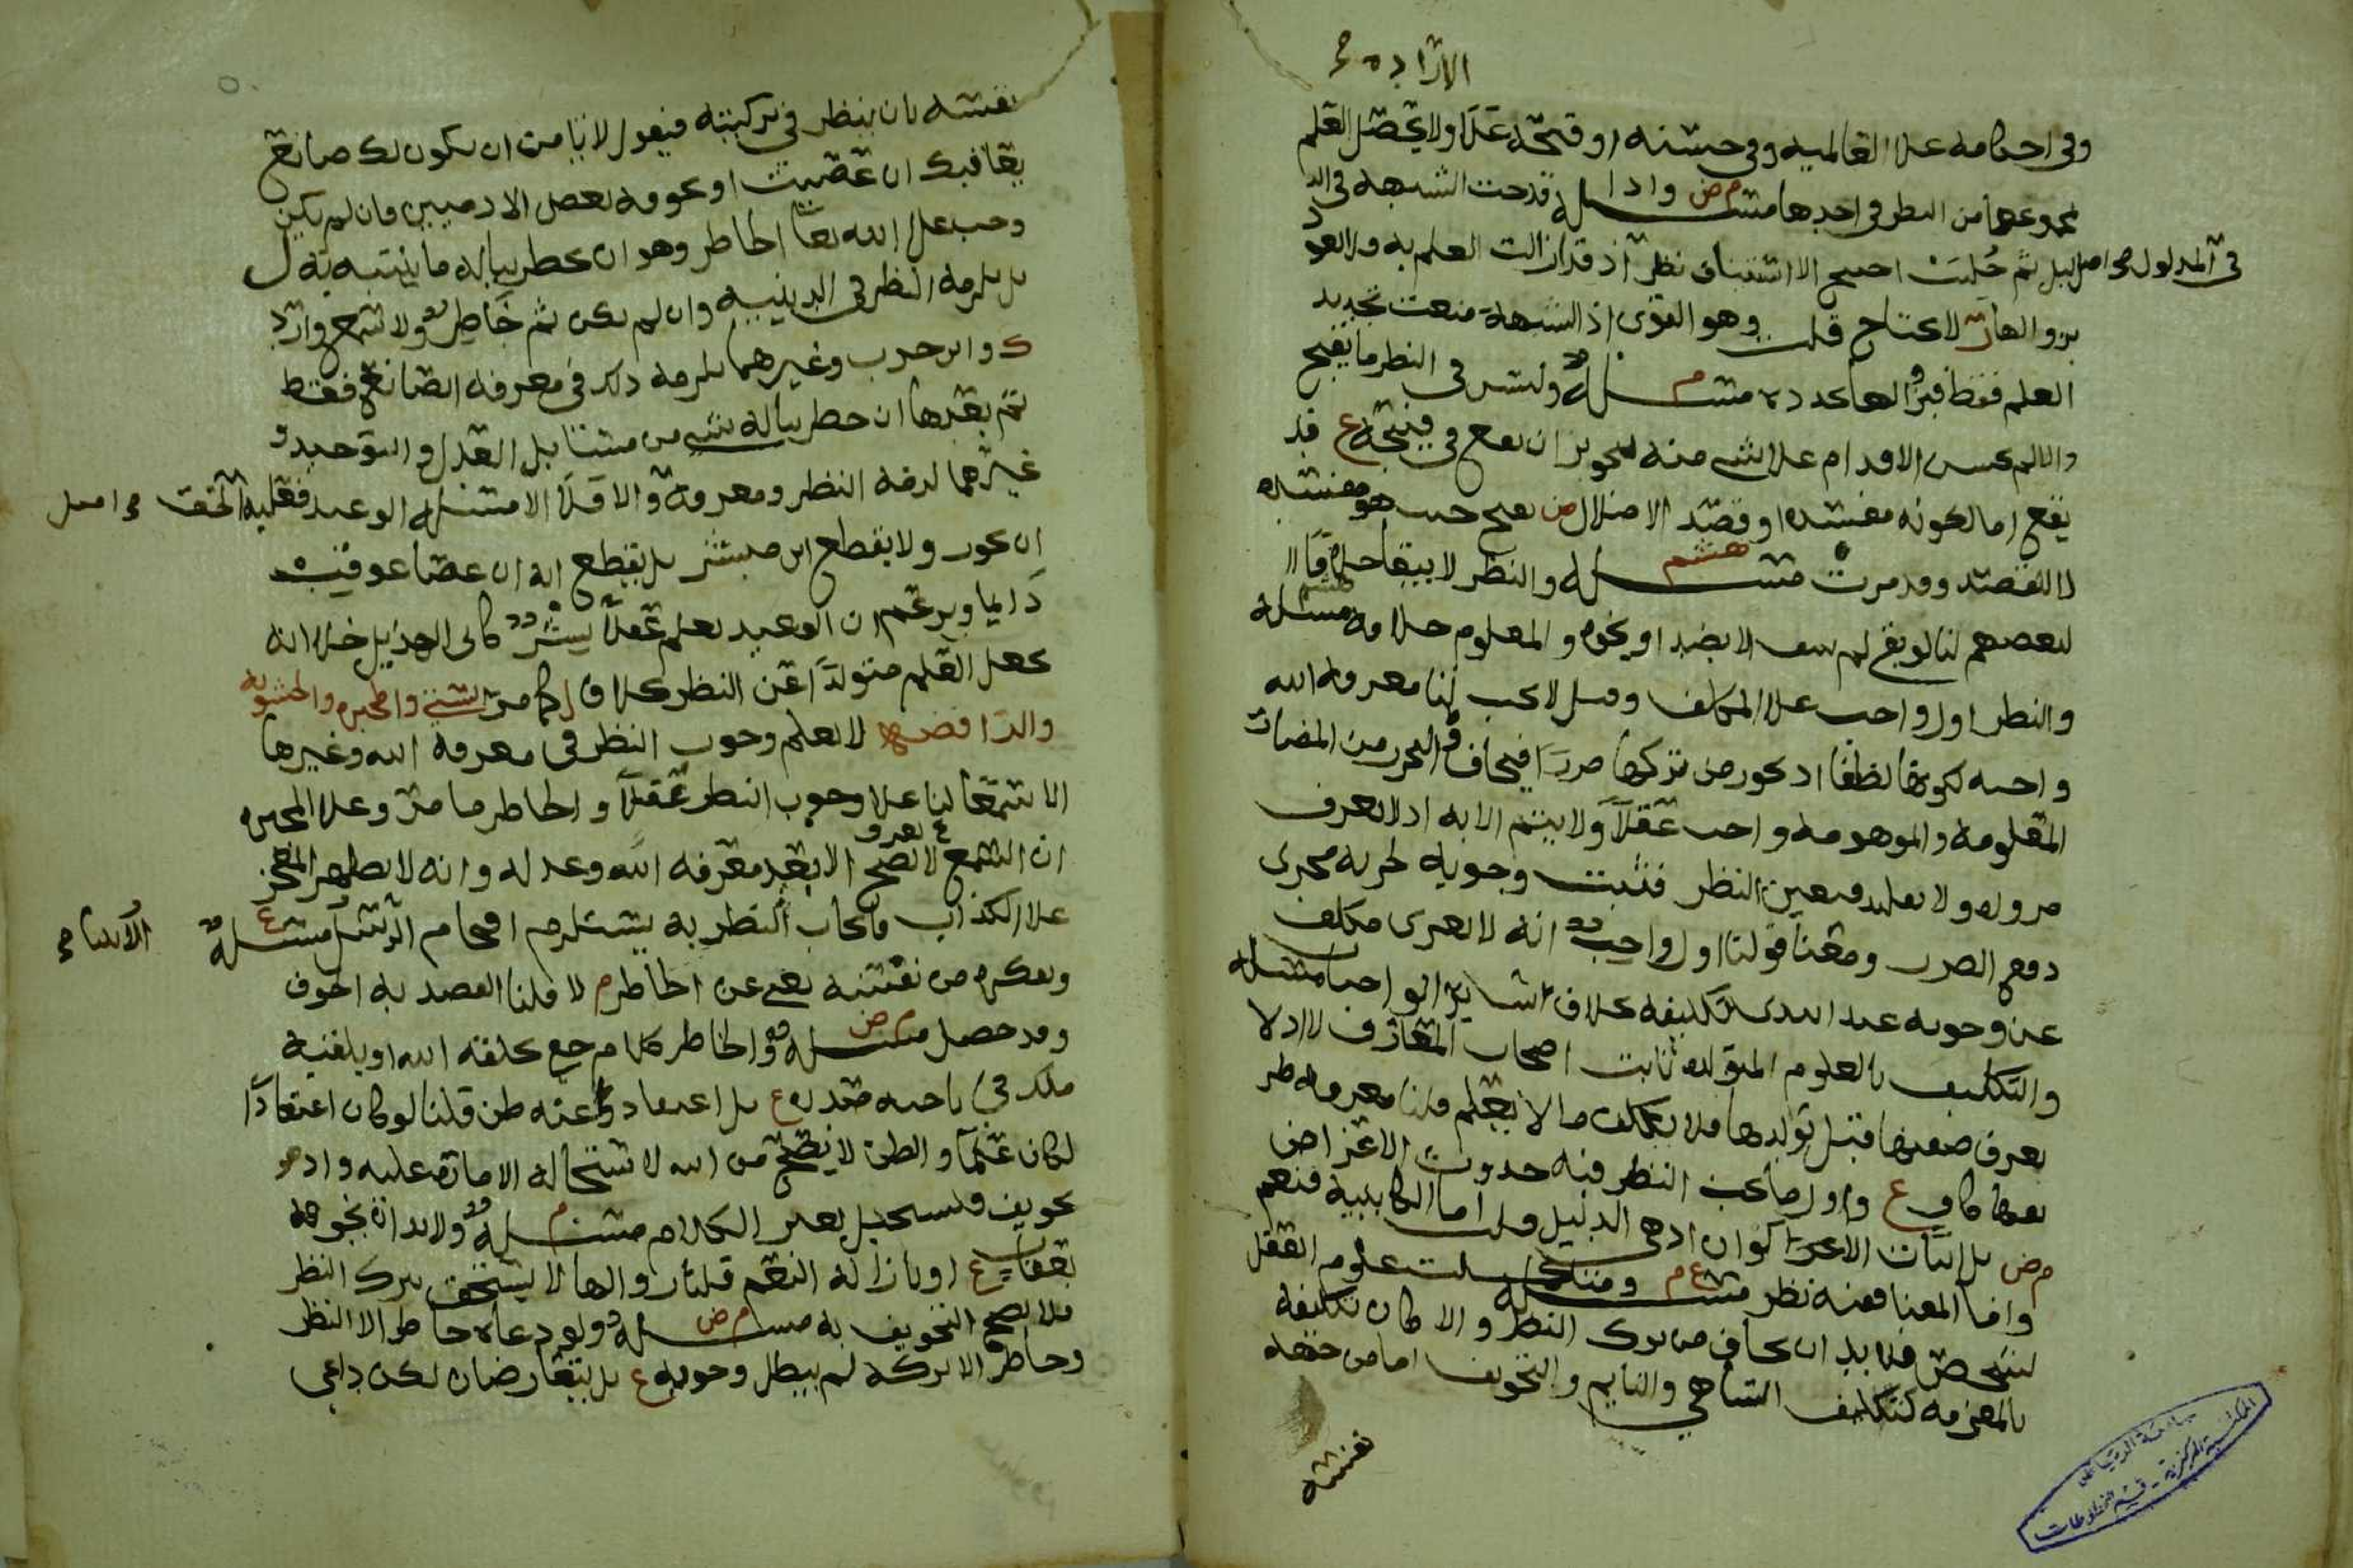 الارادة صح
وفي احكامه على العالمية وفي حسنه او قبحه عقلا ولا يحصل العلم
بمجموعهما من النظر في احدهما م ض مسلة واذا قدحت الشبهة في الد
في المدلول صح اصل
ليل ثم حُلّت احتيج الا استيناف نظر اذ قد ازالت العلم به
بزوالها لا يحتاج قلت وهو القوي اذ الشبهة منعت تجديد
العلم فقط فبزوالها تجدده م مسلة وليس في النظر ما يقبح
والا لم يحسن الاقدام على شي منه لتجويز ان يقع في قبيحه ع قد
يقبح اما لكونه مفسده او قصد الاضلال ض يصح حيث هو مفسده
لا القصد وقد مرت هشم مسلة والنظر لا يبقا خلافا
لبعضهم لنا لو بقي لم ينتف الا بضد او نحوه والمعلوم خلافه مسلة
والنظر اول واجب على المكلف وقيل لا يجب لنا معرفة الله
واجبه لكونها لطفا اذ يجوز من تركها ضررا فيخاف والتحرز من المضار
المعلومة والموهومة واجب عقلا ولا يتم الا به اذ لا تعرف
ضرورة ولا تقليد فتعين النظر فثبت وجوبه لجريه مجرى
دفع الضرر ومعنا قولنا اول واجب انه لا يعرى مكلف
عن وجوبه عند ابتدى تكليفه بخلاف ساير الواجبات مسلة
والتكليف بالعلوم المتولدة ثابت اصحاب المعارف لا اذ لا
يعرف صفتها قبل تولدها فلا يكلف ما لا يعلم قلنا معرفة طر
يقها كاف ع واول ما يجب النظر فيه حدوث الاعراض
م ض بل اثبات الاعراض الاكوان اذ هي الدليل قلت اما الكابيبة فنعم
واما المعنا ففيه نظر ع م مسلة ومتى كملت علوم العقل
لشخص فلا بد ان يخاف من ترك النظر والا كان تكليفه
بالمعرفه كتكليف الساهي والنايم والتخويف اما من جهة
نفسه
نفسه بان ينظر في تركيبه فيقول لا نامن ان يكون لك صانع
يعاقبك ان عصيت او نحوفه بعض الادميين فان لم يكن
وجب على الله تعا الخاطر وهو ان يخطر بباله ما ينتبه به ل
بل يلزمه النظر في الدينية وان لم يكن ثم خاطر ولا سمع وارد
ك وابن حرب وغيرهما يلزمه ذلك في معرفه الصانع فقط
ثم بعدها ان خطر بباله شي من مسايل العدل والتوحيد و
غيرهما لزمه النظر ومعرفة والا فلا الا مسلة الوعيد فعليه
الحق صح اصل
ان يجوز ولا يقطع ابن مبشر بل يقطع انه ان عصا عوقب
دايما ويزعم ان الوعيد يعلم عقلا بشر كابي الهذيل خلا انه
يجعل العلم متولدا عن النظر بخلافه كما مر السني والمجبره والحشوية
والرافضه لا يعلم وجوب النظر في معرفة الله وغيرها
الا سمعا لنا على وجوب النظر عقلا والخاطر ما مر وعلى المجبره
ان السمع لا يصح الا بعد معرفة الله وعدله وانه لا يظهر المعجز
على الكذاب فايجاب النظر به يستلزم افحام الرسل ع مسلة
الانسان صح
وتفكره من نفسه يغني عن الخاطر م لا قلنا القصد به الخوف
وقد حصل م ض مسلة والخاطر كلام خفي يخلقه الله او يلقيه
ملك في ناحية صدره ع بل اعتقاد وعنه ظن قلنا لو كان اعتقادا
لكان علما والظن لا يصح من الله لاستحالة الامارة عليه واذ هو
تخويف فيستحيل بغير الكلام م مسلة ولا بد ان يخوفه
بعقاب ع او بازالة النعم قلنا زوالها لا يستحق بترك النظر
فلا يصح التخويف به م ض مسلة ولو دعاه خاطر الا النظر
وخاطر الا تركه لم يبطل وجوبه ع بل يتعارضان لكن داعي
جامعة الرياض
المكتبة المركزية - قسم المخطوطات